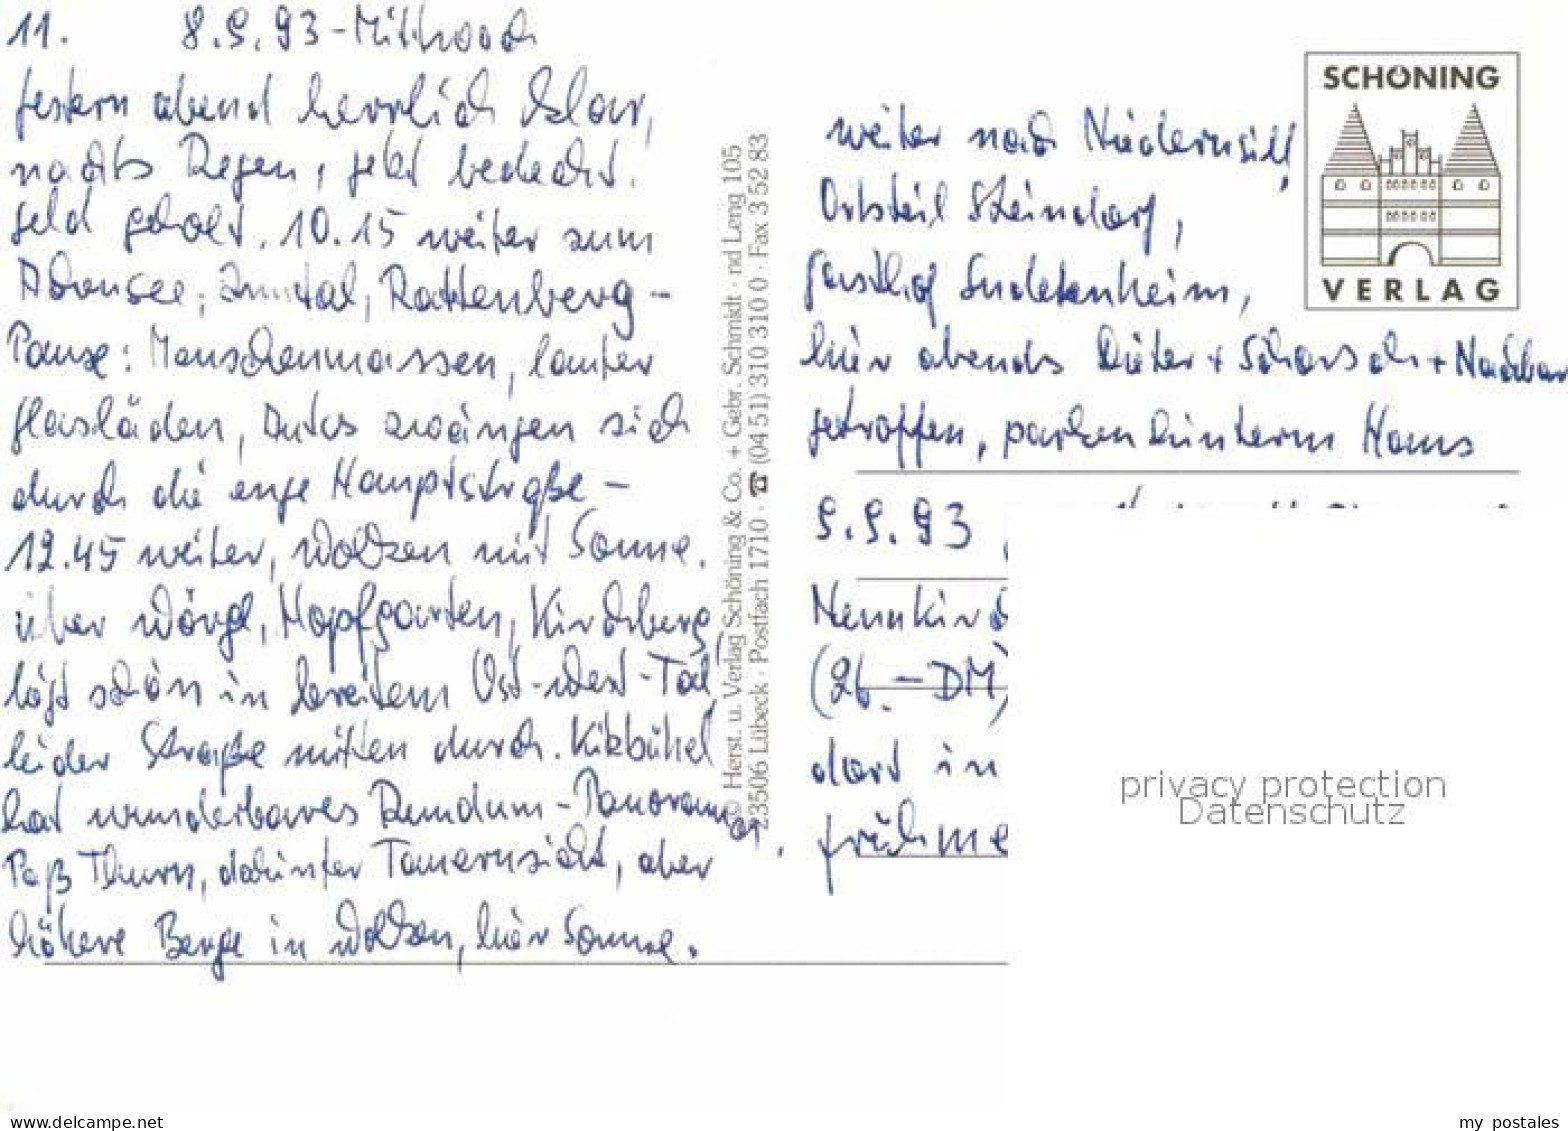 11. 8.9.93 - Mittwoch
gestern abend herrlich klar,
nachts Regen, jetzt bedeckt.
Geld geholt. 10.15 weiter zum
Achensee, Inntal, Rattenberg -
Pause: Menschenmassen, lauter
Glasläden, Autos zwängen sich
durch die enge Hauptstraße -
12.45 weiter, Wolken mit Sonne.
über Wörgl, Hopfgarten, Kirchberg,
liegt schön in breitem Ost-West-Tal,
leider Straße mitten durch. Kitzbühel
hat wunderbares Rundum-Panorama.
Paß Thurn, dahinter Tauernsicht, aber
höhere Berge in Wolken, hier Sonne.
© Herst. u. Verlag Schöning & Co. + Gebr. Schmidt · nd Leng 105
23506 Lübeck · Postfach 1710 · ☎ (04 51) 310 310 0 · Fax 3 52 83
SCHÖNING
VERLAG
weiter nach Niedernsill,
Ortsteil Steindorf,
Gasthof Sudetenheim,
hier abends Dieter + Schorsch + Nachbar
getroffen, parken hinterm Haus
9.9.93
Neunkirch
(26.- DM)
dort in
frühme
privacy protection
Datenschutz
www.delcampe.net
my_postales